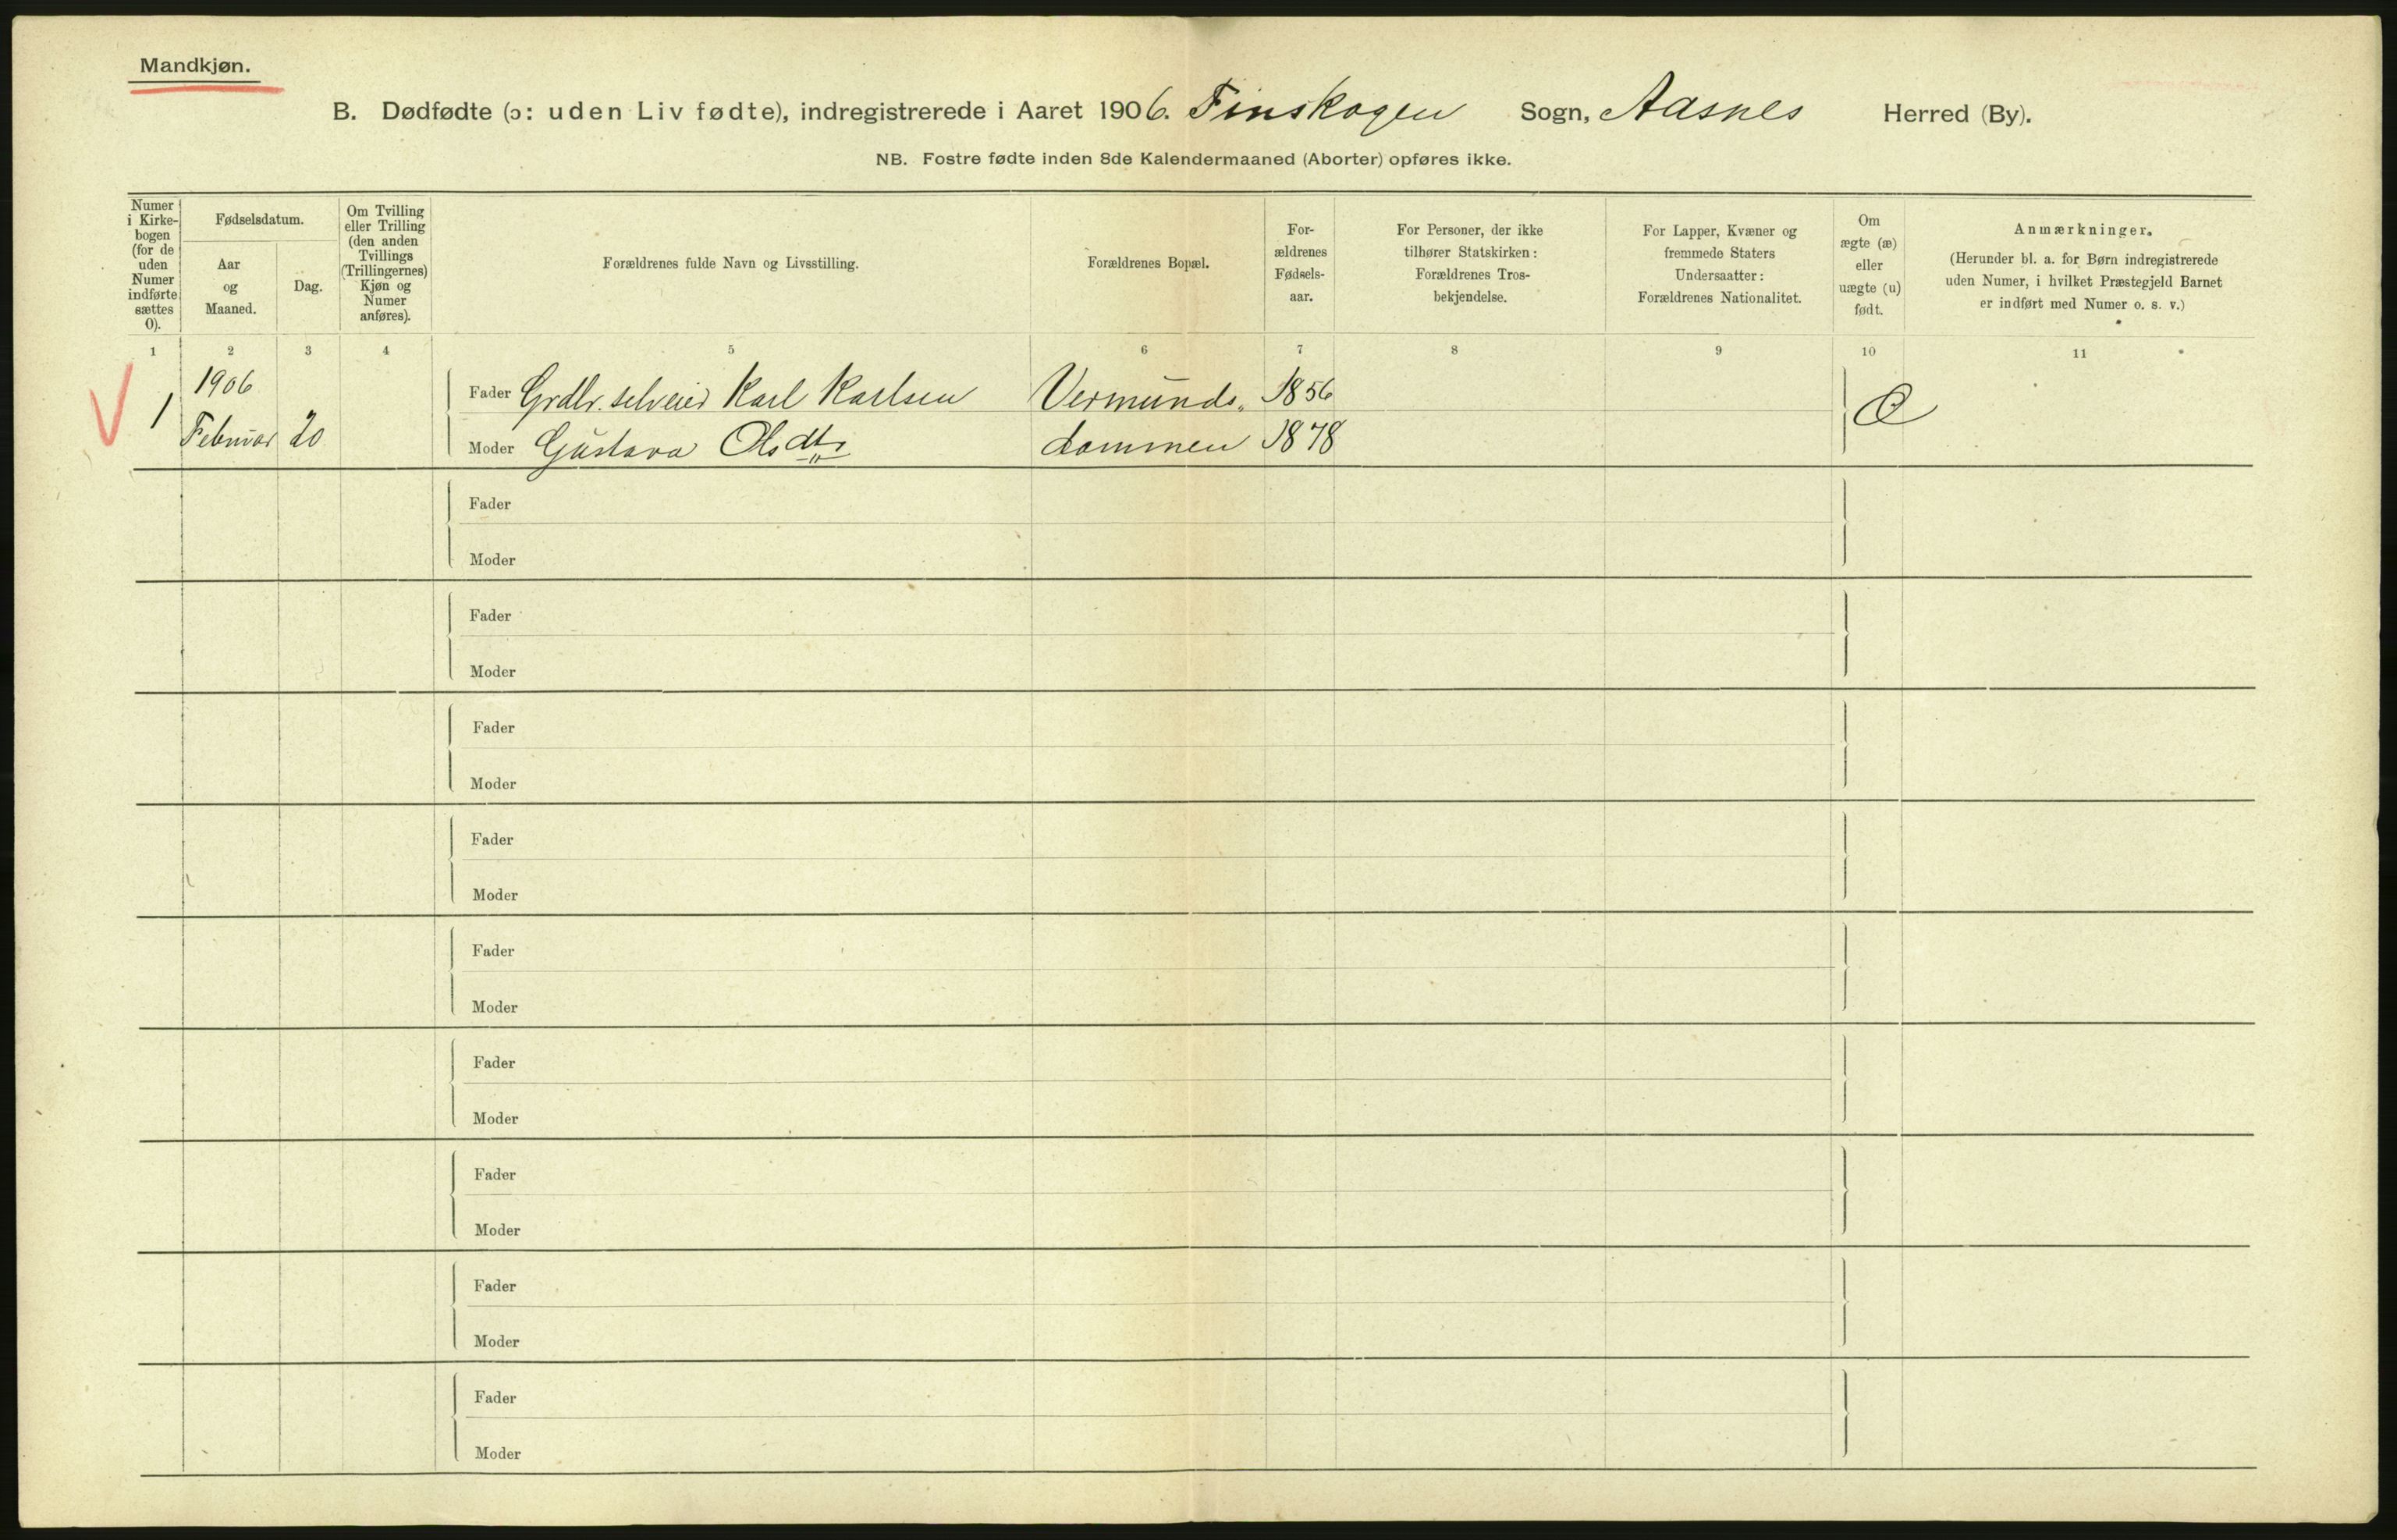 Mandkjøn.
B. Dødfødte (ɔ: uden Liv fødte), indregistrerede i Aaret 1906. Finskogen Sogn, Aasnes Herred (By).
NB. Fostre fødte inden 8de Kalendermaaned (Aborter) opføres ikke.
Numer
i Kirke-
bogen
(for de
uden
Numer
indførte
sættes
0).
Fødselsdatum.
Aar
og
Maaned.
Dag.
Om Tvilling
eller Trilling
(den anden
Tvillings
(Trillingernes)
Kjøn og
Numer
anføres).
Forældrenes fulde Navn og Livsstilling.
Forældrenes Bopæl.
For-
ældrenes
Fødsels-
aar.
For Personer, der ikke
tilhører Statskirken:
Forældrenes Tros-
bekjendelse.
For Lapper, Kvæner og
fremmede Staters
Undersaatter:
Forældrenes Nationalitet.
Om
ægte (æ)
eller
uægte (u)
født.
Anmærkninger.
(Herunder bl. a. for Børn indregistrerede
uden Numer, i hvilket Præstegjeld Barnet
er indført med Numer o. s. v.)
1 2 3 4 5 6 7 8 9 10 11
1906 Fader Grdbr. selveier Karl Karlsen Vermunds- 1856
1 Æ
Februar 20 Moder Gustava Olsdtr dammen 1878
Fader
Moder
Fader
Moder
Fader
Moder
Fader
Moder
Fader
Moder
Fader
Moder
Fader
Moder
Fader
Moder
Fader
Moder